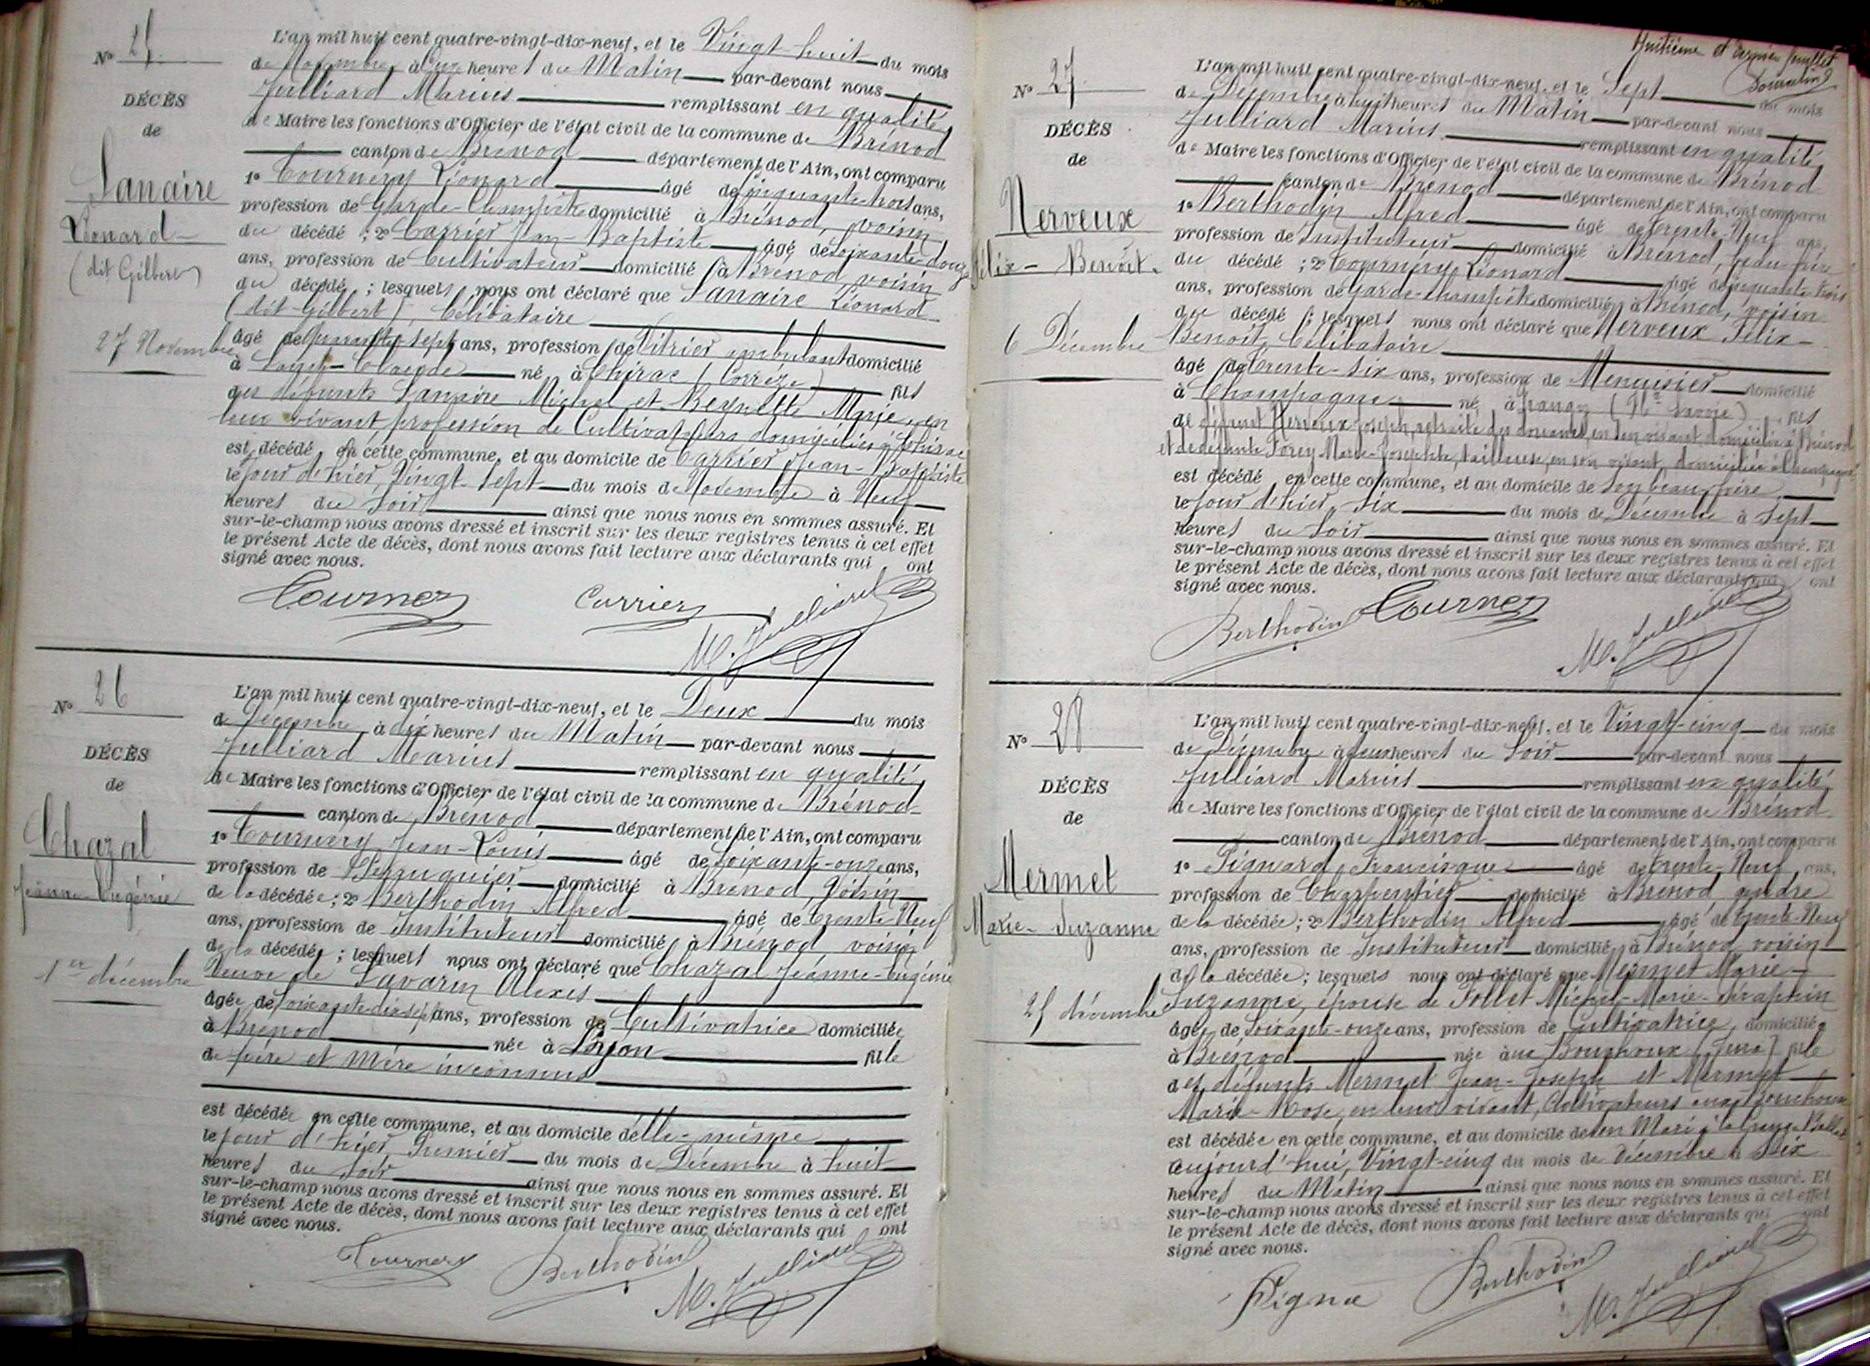 N° 25
DÉCÈS
de
Lanaire
Léonard
(dit Gilbert)
27 Novembre
L'an mil huit cent quatre-vingt-dix-neuf, et le Vingt-huit du mois
de Novembre à heures du Matin par-devant nous
Julliard Marius remplissant en qualité
de Maire les fonctions d'Officier de l'état civil de la commune de Brénod
canton de Brénod département de l'Ain, ont comparu
1° Tournery Léonard âgé de cinquante-trois ans,
profession de Garde-Champêtre domicilié à Brénod, voisin
du décédé ; 2° Carrier Jean-Baptiste âgé de soixante-douze
ans, profession de Cultivateur domicilié à Brénod voisin
du décédé ; lesquels nous ont déclaré que Lanaire Léonard
(dit Gilbert), Célibataire
âgé de quarante-sept ans, profession de Vitrier ambulant domicilié
à né à Chirac (Corrèze) fils
des défunts Lanaire Michel et Marie, en
leur vivant profession de Cultivateurs domiciliés à Chirac
est décédé en cette commune, et au domicile de Carrier Jean-Baptiste
le jour d'hier, Vingt-sept du mois de Novembre à Neuf
heures du Soir ainsi que nous nous en sommes assuré. Et
sur-le-champ nous avons dressé et inscrit sur les deux registres tenus à cet effet
le présent Acte de décès, dont nous avons fait lecture aux déclarants qui ont
signé avec nous.
Tournery Carrier M. Julliard
N° 26
DÉCÈS
de
Chazal
Jeanne-Eugénie
1er décembre
L'an mil huit cent quatre-vingt-dix-neuf, et le Deux du mois
de Décembre à dix heures du Matin par-devant nous
Julliard Marius remplissant en qualité
de Maire les fonctions d'Officier de l'état civil de la commune de Brénod
canton de Brénod département de l'Ain, ont comparu
1° Tournery Jean-Louis âgé de soixante-onze ans,
profession de Perruquier domicilié à Brénod, voisin
de la décédée ; 2° Berthodin Alfred âgé de trente-neuf
ans, profession de Instituteur domicilié à Brénod voisin
de la décédé ; lesquels nous ont déclaré que Chazal Jeanne-Eugénie
Veuve de Savarin Alexis
âgée de soixante-dix-sept ans, profession de Cultivatrice domiciliée
à Brénod née à Lyon fille
de père et mère inconnus
est décédée en cette commune, et au domicile d'elle-même
le jour d'hier, Premier du mois de Décembre à huit
heures du Soir ainsi que nous nous en sommes assuré. Et
sur-le-champ nous avons dressé et inscrit sur les deux registres tenus à cet effet
le présent Acte de décès, dont nous avons fait lecture aux déclarants qui ont
signé avec nous.
Tournery Berthodin M. Julliard
Huitième et dernier feuillet
N° 27
DÉCÈS
de
Nerveux
Félix-Benoit
6 Décembre
L'an mil huit cent quatre-vingt-dix-neuf, et le Sept du mois
de Décembre à huit heures du Matin par-devant nous
Julliard Marius remplissant en qualité
de Maire les fonctions d'Officier de l'état civil de la commune de Brénod
canton de Brénod département de l'Ain, ont comparu
1° Berthodin Alfred âgé de trente-neuf ans,
profession de Instituteur domicilié à Brénod, beau-frère
du décédé ; 2° Tournery Léonard âgé de cinquante-trois
ans, profession de Garde-champêtre domicilié à Brénod, voisin
du décédé ; lesquels nous ont déclaré que Nerveux Félix-
Benoit, Célibataire
âgé de trente-six ans, profession de Menuisier domicilié
à Champagne né à (Hte Savoie) fils
de défunt Nerveux Joseph, retraité des douanes, en son vivant domicilié à Brénod
et de défunte Forey Marie-Josephte, tailleuse, en son vivant, domiciliée à Champagne
est décédé en cette commune, et au domicile de son beau-frère
le jour d'hier, six du mois de Décembre à sept
heures du Soir ainsi que nous nous en sommes assuré. Et
sur-le-champ nous avons dressé et inscrit sur les deux registres tenus à cet effet
le présent Acte de décès, dont nous avons fait lecture aux déclarants qui ont
signé avec nous.
Berthodin Tournery M. Julliard
N° 28
DÉCÈS
de
Mermet
Marie-Suzanne
25 décembre
L'an mil huit cent quatre-vingt-dix-neuf, et le Vingt-cinq du mois
de Décembre à deux heures du Soir par-devant nous
Julliard Marius remplissant en qualité
de Maire les fonctions d'Officier de l'état civil de la commune de Brénod
canton de Brénod département de l'Ain, ont comparu
1° Francisque âgé de trente-neuf ans,
profession de Charpentier domicilié à Brénod gendre
de la décédée ; 2° Berthodin Alfred âgé de trente-neuf
ans, profession de Instituteur domicilié à Brénod voisin
de la décédée ; lesquels nous ont déclaré que Mermet Marie-
Suzanne, épouse de Follet Michel-Marie-Séraphin
âgée de soixante-onze ans, profession de Cultivatrice domiciliée
à Brénod née aux Bouchoux (Jura) fille
des défunts Mermet Jean-Joseph et Mermet
Marie-Rose, en leur vivant, Cultivateurs aux Bouchoux
est décédée en cette commune, et au domicile de son Mari à la
aujourd'hui, Vingt-cinq du mois de décembre à Six
heures du Matin ainsi que nous nous en sommes assuré. Et
sur-le-champ nous avons dressé et inscrit sur les deux registres tenus à cet effet
le présent Acte de décès, dont nous avons fait lecture aux déclarants qui ont
signé avec nous.
Berthodin M. Julliard